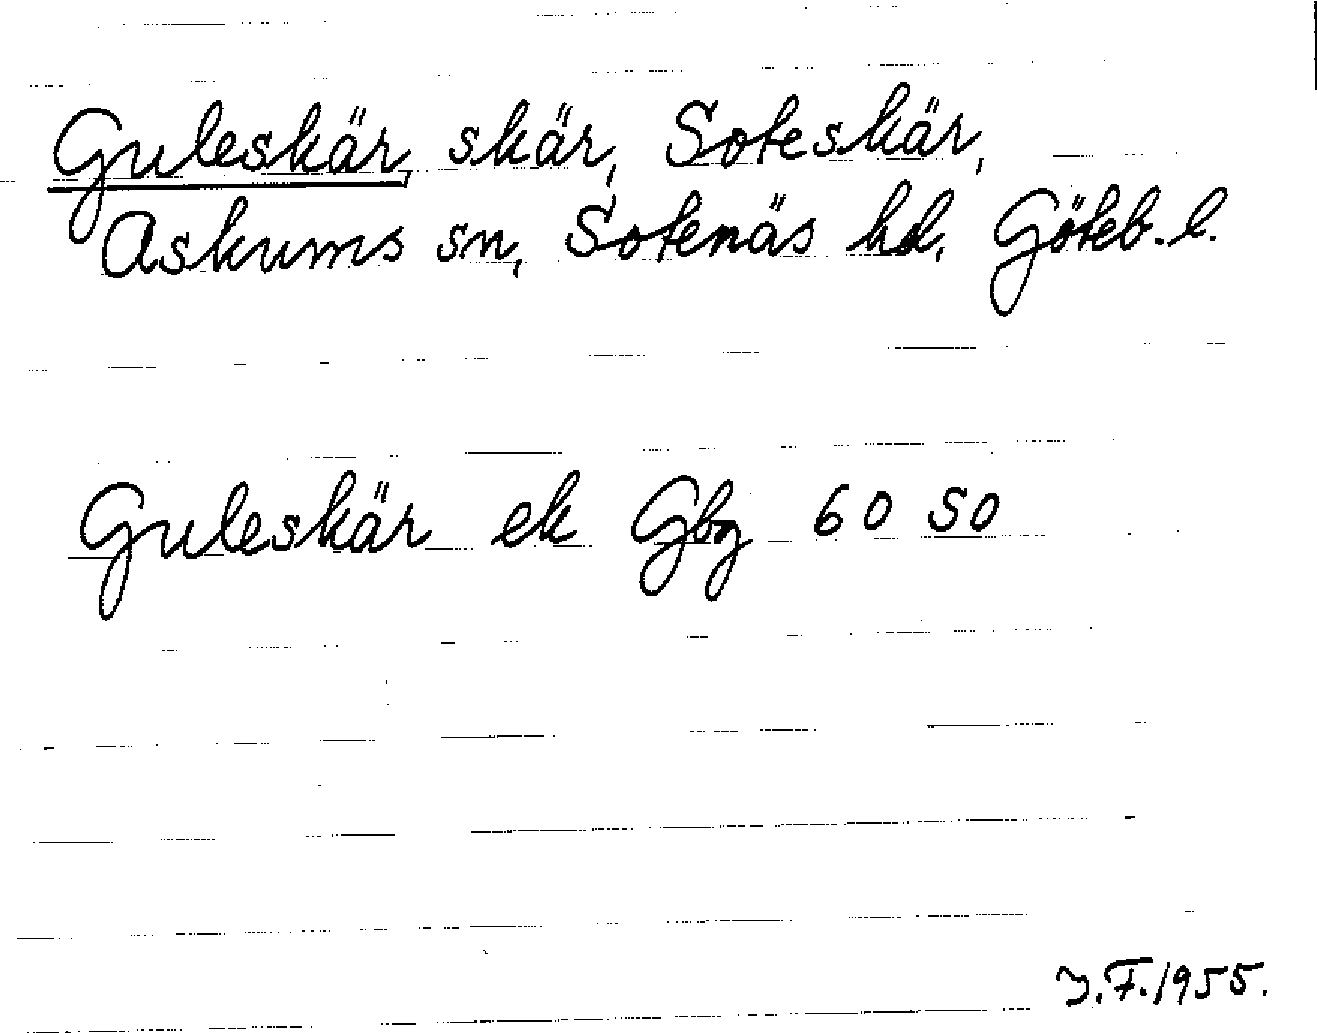 Guleskär, skär, Soteskär,
Askums sn, Sotenäs hd, Göteb. l.
Guleskär ek Gbg 60 50
J.F. 1955.